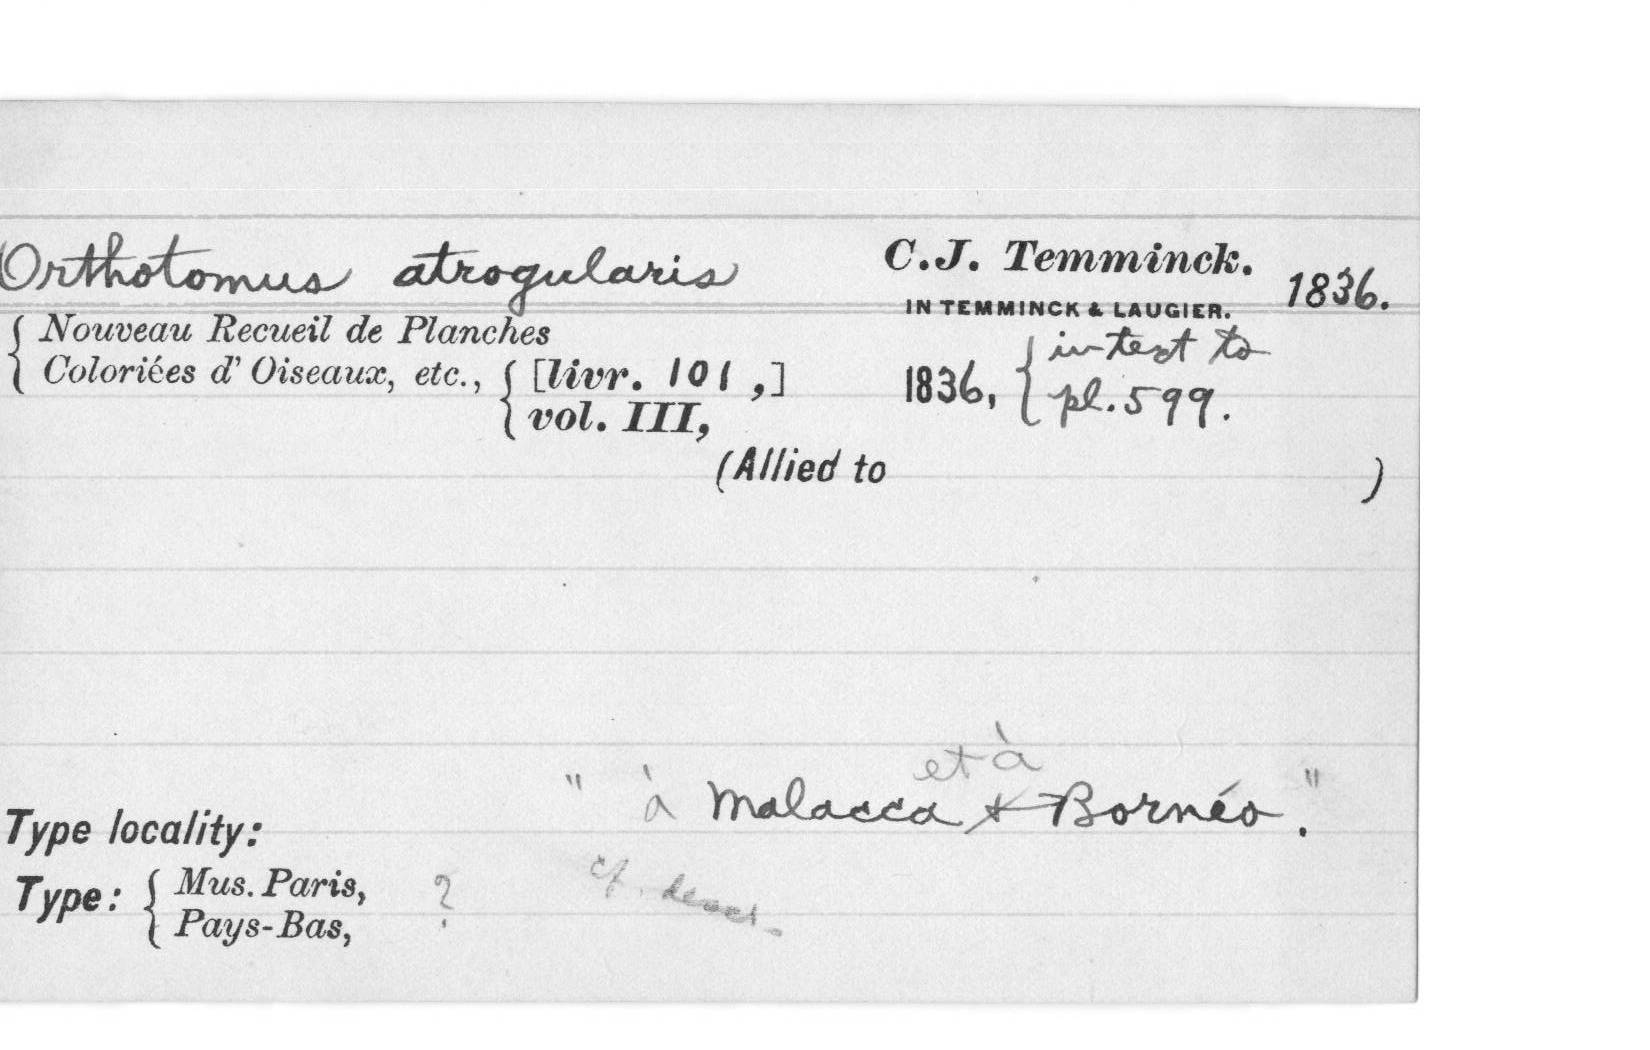 Orthotomus atrogularis C.J. Temminck. 1836.
IN TEMMINCK & LAUGIER.
{ Nouveau Recueil de Planches
Coloriées d' Oiseaux, etc., { [livr. 101 ,] 1836, { in text to
vol. III, pl. 599.
(Allied to )
et à
Type locality: " à Malacca & Bornéo . "
Type: { Mus. Paris, ? cf. descr.
Pays-Bas,